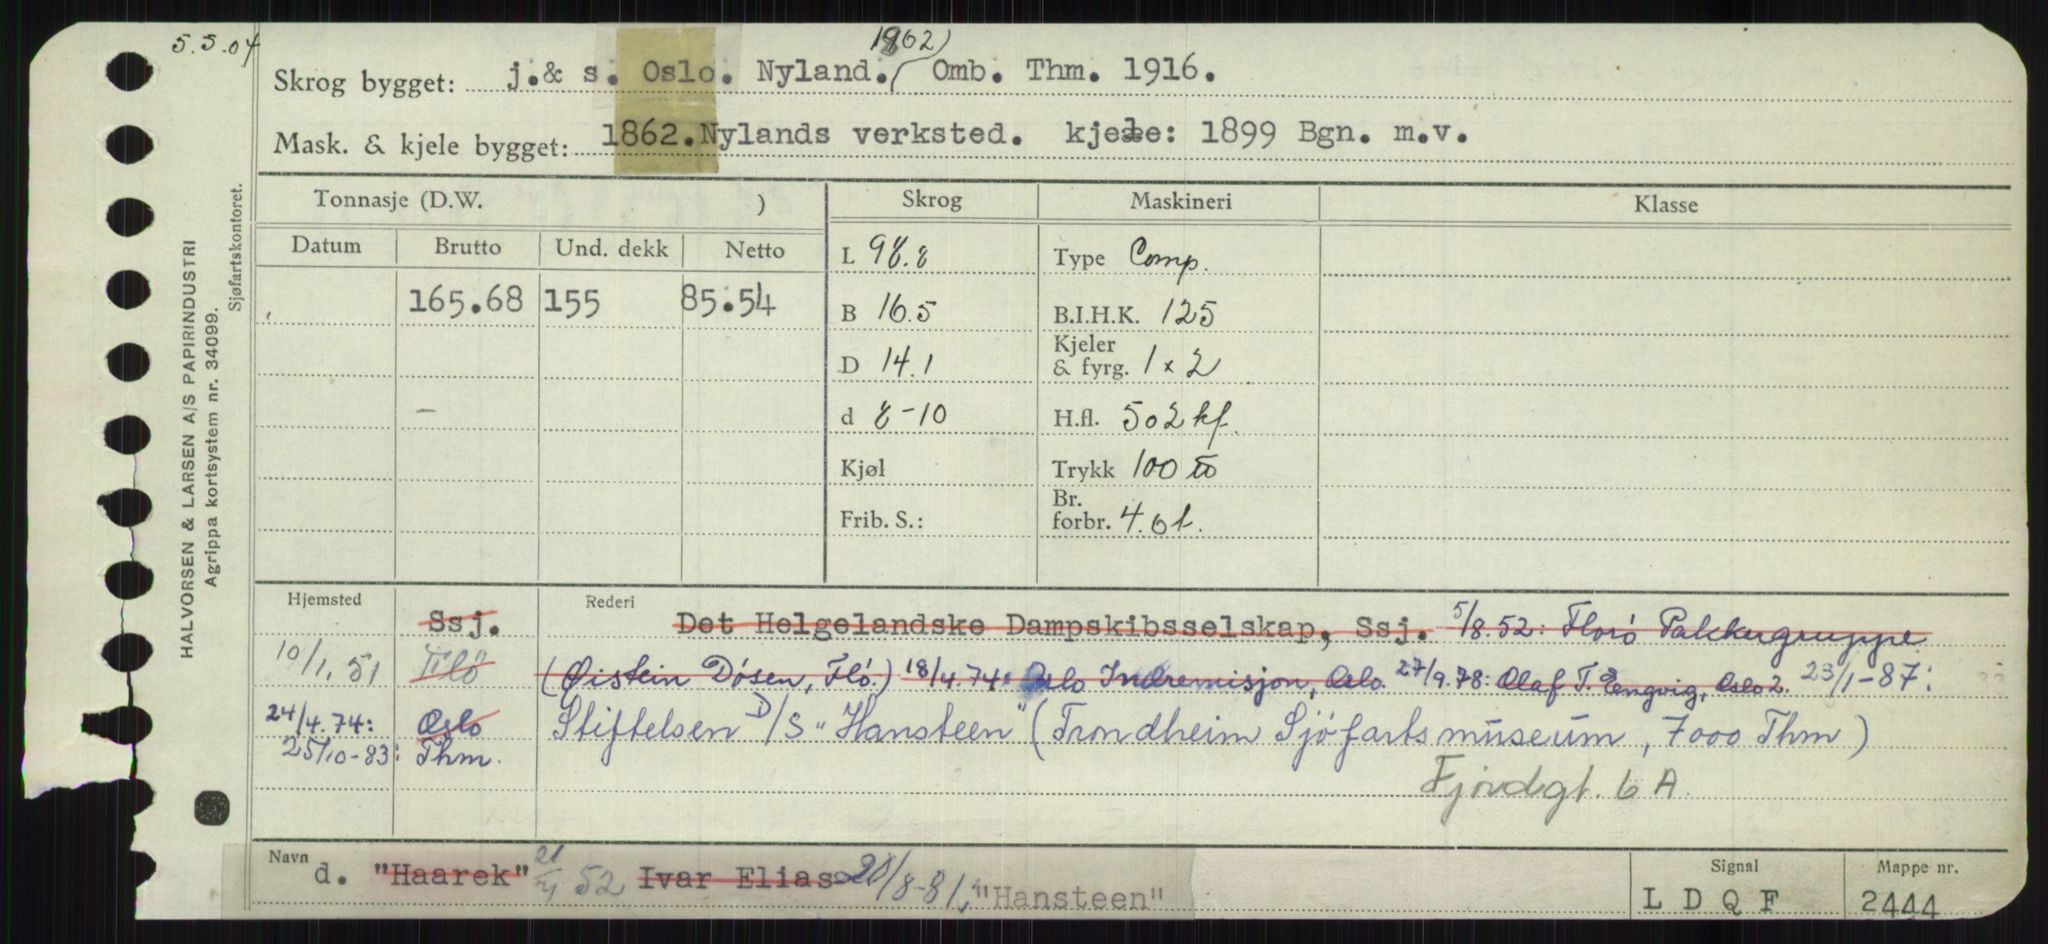 5.5.04
1862)
Skrog bygget: j.& s. Oslo. Nyland. ( Omb. Thm. 1916.
Mask. & kjele bygget: 1862. Nylands verksted. kjele: 1899 Bgn. m.v.
HALVORSEN & LARSEN A/S PAPIRINDUSTRI
Agrippa kortsystem nr. 34099.
Sjøfartskontoret.
Tonnasje (D.W. ) Skrog Maskineri Klasse
Datum Brutto Und. dekk Netto
L 98.8 Type Comp.
165.68 155 85.54 B 16.5 B.I.H.K. 125
D 14.1 Kjeler & fyrg. 1 x 2
– d 8-10 H.fl. 502 kf.
Kjøl Trykk 100 to
Frib. S.: Br. forbr. 4.0 t.
Hjemsted Rederi
Ssj. Det Helgelandske Dampskibsselskap, Ssj. 5/8.52: Florø Pakkergruppe
10/1.51 Flö (Øistein Døsen, Flö.) 18/4.74: Oslo Indremisjon, Oslo. 27/9.78: Olaf T. Engvig, Oslo 2. 23/1-87:
24/4.74: Oslo Stiftelsen D/S "Hansteen" (Trondheim Sjöfartsmuseum, 7000 Thm)
25/10-83: Thm.
Fjordgt. 6 A
Navn d. "Haarek" 21/4 52 Ivar Elias 20/8-81, "Hansteen"
Signal L D Q F
Mappe nr. 2444